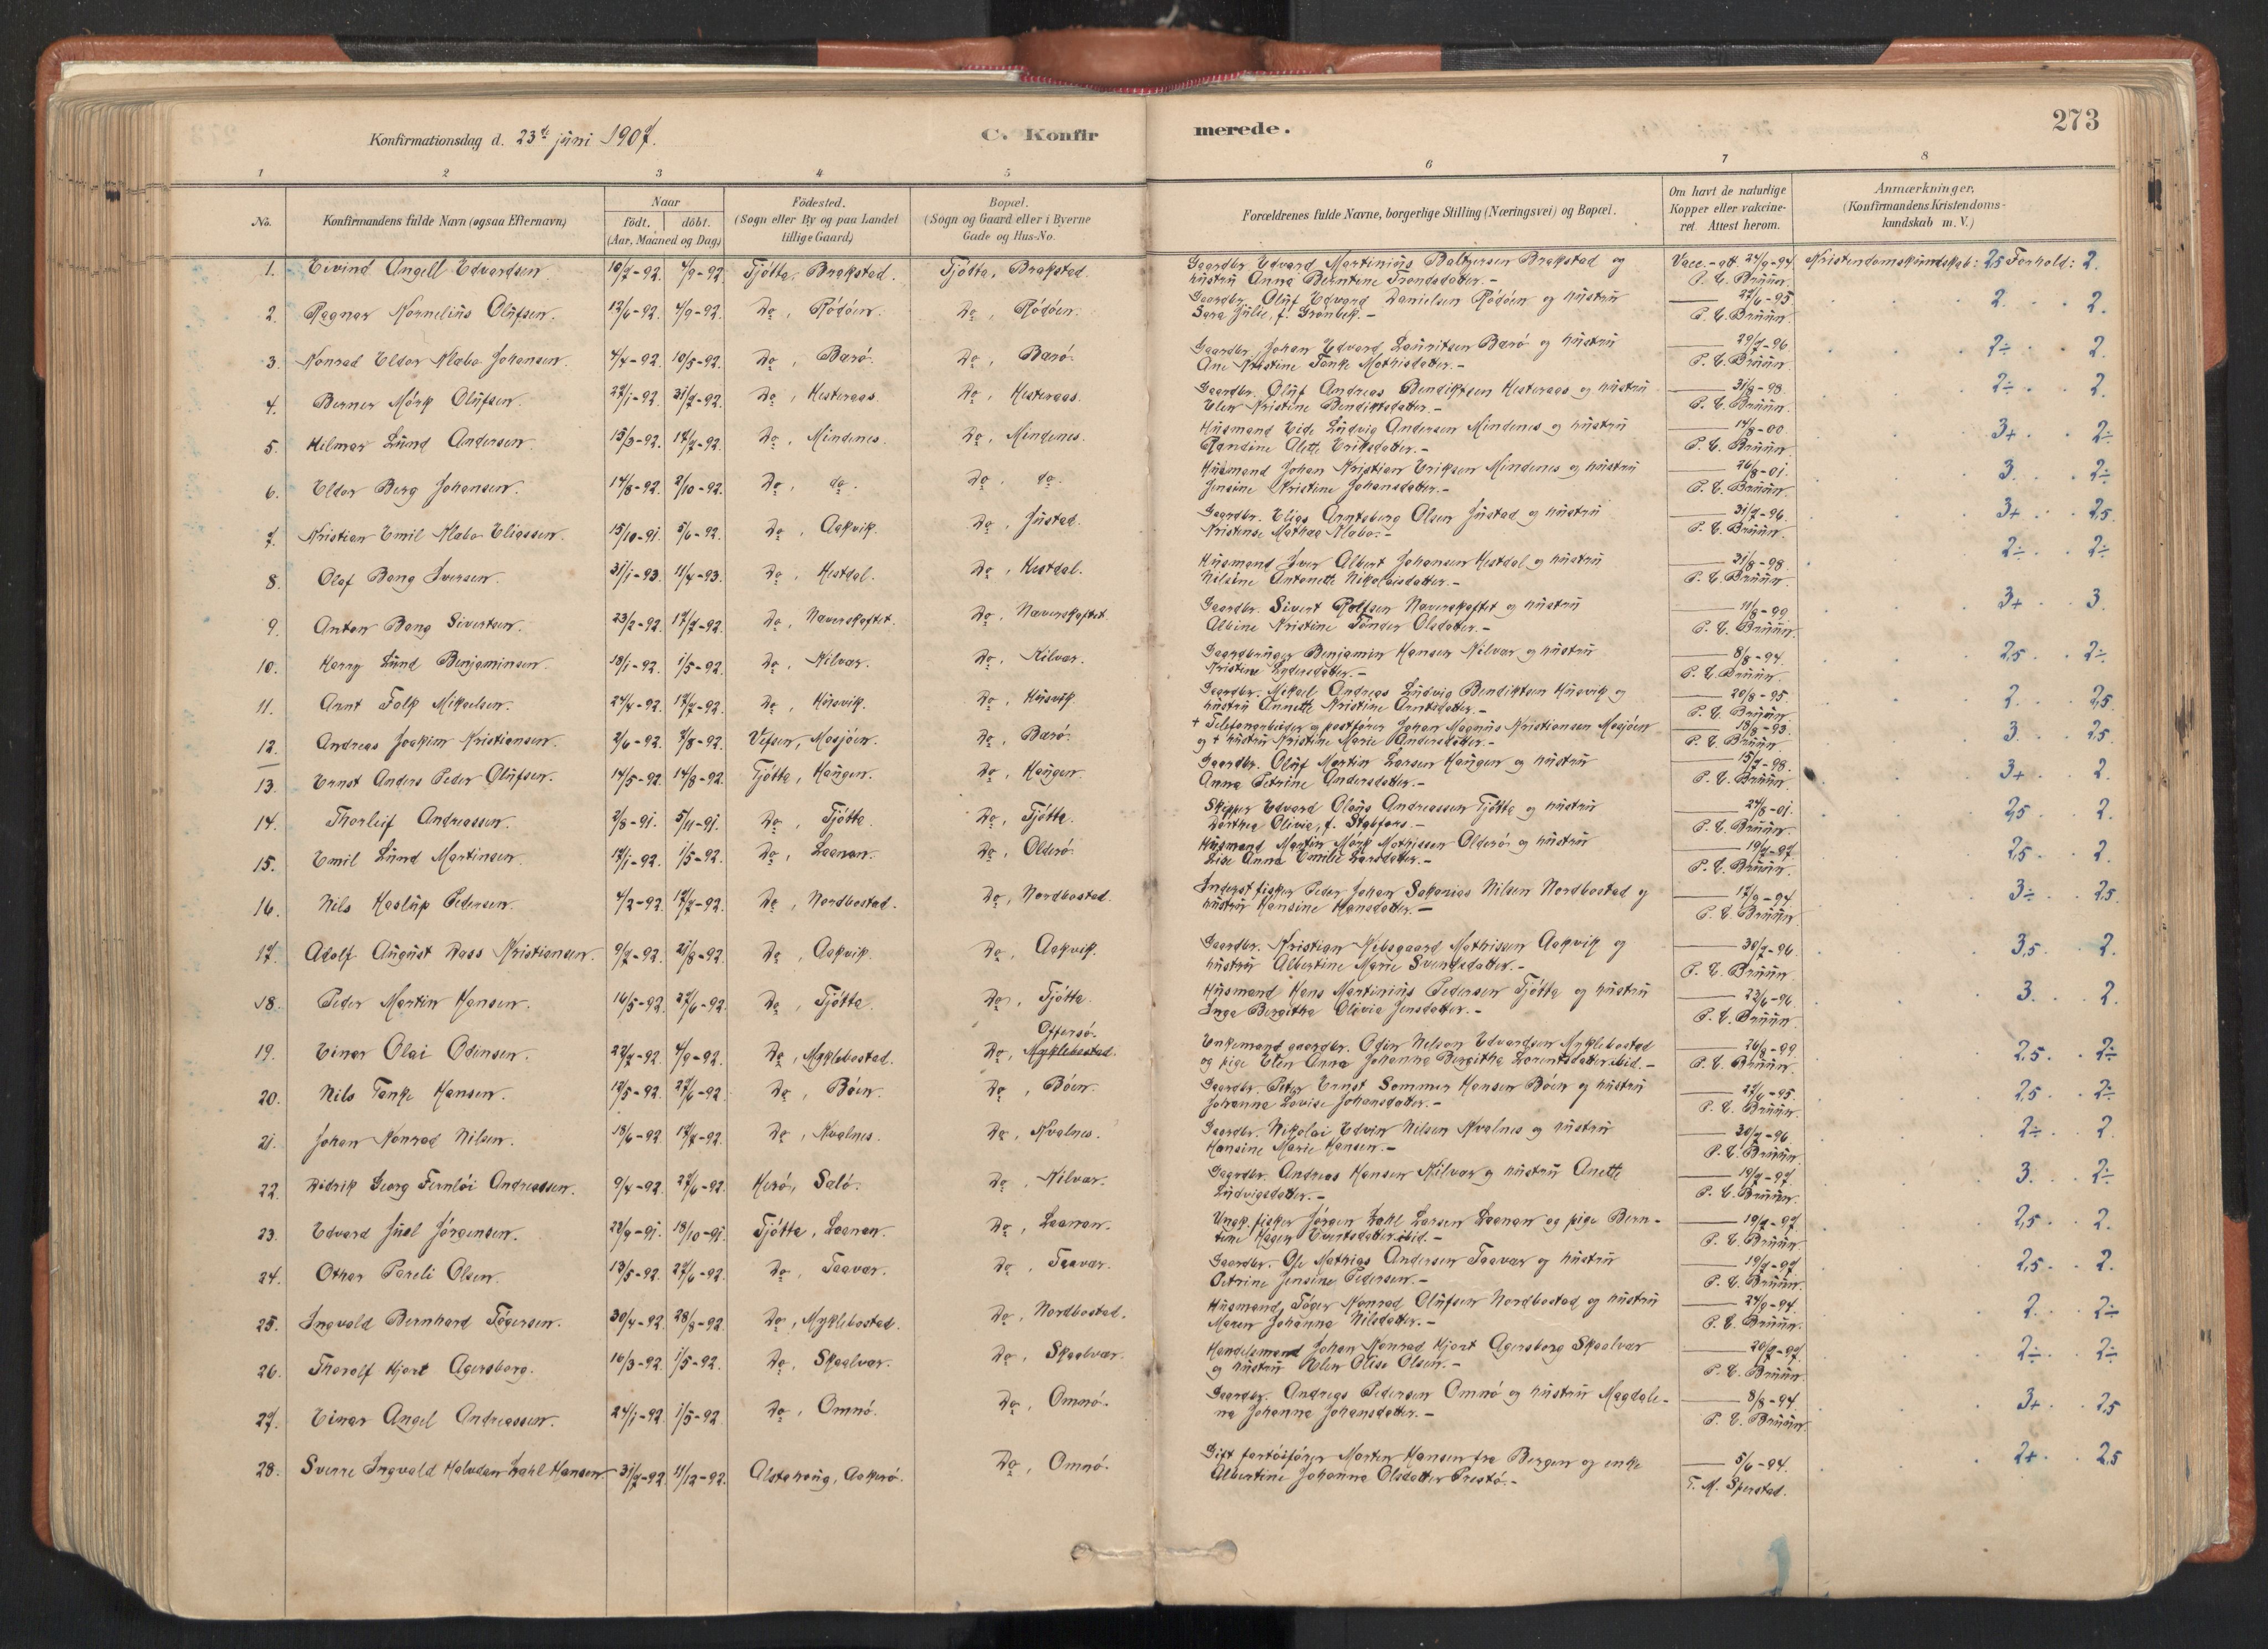 273
Konfirmationsdag d. 23de juni 1907.
C. Konfirmerede.
1 2 3 4 5 6 7 8
No. Konfirmandens fulde Navn (ogsaa Efternavn) Naar født. døbt. (Aar, Maaned og Dag) Fødested. (Sogn eller By og paa Landet tillige Gaard) Bopæl. (Sogn og Gaard eller i Byerne Gade og Hus-No. Forældrenes fulde Navne, borgerlige Stilling (Næringsvei) og Bopæl. Om havt de naturlige Kopper eller vakcineret Attest herom. Anmærkninger, (Konfirmandens Kristendomskundskab m. V.)
1. Eivind Angell Edvardsen 10/7-92. 4/9-92. Tjötta, Brakstad. Tjötta, Brakstad. Gaardbr. Edvard Martinius Baltzersen Brakstad og
hustru Anna Berntine Trondsdatter.- Vacc.-att 24/9-94. P. C. Bruun. Kristendomskundskab: 2,5 Forhold: 2.
2. Ragnar Kornelius Olufsen. 12/6-92. 4/9-92. Do, Rödöen. Do, Rödöen. Gaardbr. Oluf Edvard Danielsen Rödöen og hustru
Sara Julie, f. Grönbek.- 27/6-95. P. C. Bruun. 2. 2.
3. Konrad Eldor Klabo Johansen. 4/4-92. 10/5-92. Do, Barö. Do, Barö. Gaardbr. Johan Edvard Lauritsen Barö og hustru
Ane Kristine Tanke Mathisdatter.- 29/7-96. P. C. Bruun. 2÷ 2.
4. Berner Mörk Olufsen. 27/1-92. 31/7-92. Do, Hesteraas. Do, Hesteraas. Gaardbr. Oluf Andreas Bendiktsen Hesteraas og hustru
Elen Kristine Bendiktsdatter.- 31/8-98. P. C. Bruun. 2÷ 2.
5. Hilmar Lund Andersen. 15/3-92. 17/7-92. Do, Mindenes. Do, Mindenes. Husmand Eide Ludvig Andersen Mindenes og hustru
Randine Olette Eriksdatter.- 14/8-00. P. C. Bruun. 3+ 2÷
6. Eldor Berg Johansen. 14/8-92. 2/10-92. Do, do. Do, do. Husmand Johan Kristian Eriksen Mindenes og hustru
Jensine Kristine Johansdatter.- 26/8-01. P. C. Bruun. 3. 2÷
7. Kristian Emil Klabo Eliassen. 15/10-91. 5/6-92. Do, Aakvik. Do, Justad. Gaardbr. Elias Arntsberg Olsen Justad og hustru
Kristense Mathea Klabo.- 31/7-96. P. C. Bruun. 3+ 2,5.
8. Olaf Bang Iversen. 31/1-93. 11/4-93. Do, Hestdal. Do, Hestdal. Husmand Iver Albert Johansen Hestdal og hustru
Nilsine Antonette Nikolaisdatter.- 31/8-98. P. C. Bruun. 2÷ 2÷
9. Anton Bang Sivertsen. 23/2-92. 17/7-92. Do, Naverskaftet. Do, Naverskaftet. Gaardbr. Sivert Rolfsen Naverskaftet og hustru
Albine Kristine Tönder Olsdatter.- 11/8-99. P. C. Bruun. 3+ 3.
10. Harry Lund Benjaminsen. 18/1-92. 1/5-92. Do, Kilvar. Do, Kilvar. Gaardbruger Benjamin Hansen Kilvar og hustru
Kristine Lydersdatter.- 8/8-94. P. C. Bruun. 2,5 2÷
11. Arnt Falk Mikaelsen. 24/4-92. 17/7-92. Do, Husvik. Do, Husvik. Gaardbr. Mikael Andreas Ludvig Bendiktsen Husvik og
hustru Annette Kristine Arntsdatter.- 20/8-95. P. C. Bruun. 2. 2,5
12. Andreas Joakim Kristiansen. 2/6-92. 7/8-92. Vefsen, Mosjöen. Do, Barö. + Telefonarbeider og postförer Johan Magnus Kristiansen Mosjöen
og + hustru Kristine Marie Andersdatter.- 18/8-93. P. C. Bruun. 3 2,5
13. Ernst Anders Peder Olufsen. 14/5-92. 14/8-92. Tjötta, Haugen. Do, Haugen. Gaardbr. Oluf Martin Larsen Haugen og hustru
Anna Petrine Andersdatter.- 13/7-98. P. C. Bruun. 3+ 2.
14. Thorleif Andreassen. 2/8-91. 5/11-91. Do, Tjötta. Do, Tjötta. Skipper Edvard Olaus Andreassen Tjötta og hustru
Dorthea Olivia, f. Stabfors.- 24/8-01. P. C. Bruun. 2,5 2.
15. Emil Lund Martinsen. 17/1-92. 1/5-92. Do, Laanan. Do, Olderö. Husmand Martin Mörk Mathissen Olderö og hustru
Lise Anna Emilie Larsdatter.- 19/7-97. P. C. Bruun. 2,5 2.
16. Nils Haslup Pedersen. 4/2-92. 17/7-92. Do, Nordbostad. Do, Nordbostad. Inderst fisker Peder Johan Sakarias Nilsen Nordbostad og
hustru Hansine Hansdatter.- 17/9-94. P. C. Bruun. 3÷ 2,5.
17. Adolf August Dass Kristiansen. 9/7-92. 21/8-92. Do, Aakvik. Do, Aakvik. Gaardbr. Kristian Nebsgaard Mathissen Aakvik og
hustru Albertine Marie Svendsdatter.- 30/7-96. P. C. Bruun. 3,5 2.
18. Peder Martin Hansen. 16/5-92. 27/6-92. Do, Tjötta. Do, Tjötta. Husmand Hans Martinius Pedersen Tjötta og hustru
Inga Bergitha Olivia Jensdatter.- 23/6-96. P. C. Bruun. 3. 2.
Offersö.
19. Einar Olai Odinsen. 27/7-92. 4/9-92. Do, Myklebostad. Do, Myklebostad. Enkemand gaardbr. Odin Nelson Edvardsen Myklebostad
og pige Elen Anna Johanna Bergitha Lorentsdatter ibid.- 26/8-99. P. C. Bruun. 2,5. 2÷
20. Nils Tanke Hansen. 12/5-92. 27/6-92. Do, Böen. Do, Böen. Gaardbr. Peter Ernst Sommer Hansen Böen og hustru
Johanna Lovise Johansdatter.- 27/6-95. P. C. Bruun. 2,5 2÷
21. Johan Konrad Nilsen. 18/6-92. 17/8-92. Do, Kvalnes. Do, Kvalnes. Gaardbr. Nikolai Edvin Nilsen Kvalnes og hustru
Hansine Marie Hansen.- 30/7-96. P. C. Bruun. 2÷ 2.
22. Didrik Georg Fernlöi Andreassen. 9/4-92. 27/6-92. Herö, Salö. Do, Kilvar. Gaardbr. Andreas Hansen Kilvar og hustru Anette
Ludvigsdatter.- 19/7-97. P. C. Bruun. 3. 2÷
23. Edvard Juel Jörgensen. 22/9-91. 18/10-91. Tjötta, Laanan. Do, Laanan. Ungk. fisker Jörgen Zahl Larsen Laanan og pige Berntine Hagen Evertsdatter ibid.- 19/7-97. P. C. Bruun. 2,5 2.
24. Othar Pareli Olsen. 13/5-92. 27/6-92. Do, Taavar. Do, Taavar. Gaardbr. Ole Mathias Andersen Taavar og hustru
Petrine Jensine Pedersen.- 19/7-97. P. C. Bruun. 2,5. 2.
25. Ingvald Bernhard Tögersen. 30/4-92. 28/8-92. Do, Myklebostad. Do, Nordbostad. Husmand Töger Konrad Olufsen Nordbostad og hustru
Maren Johanna Nilsdatter.- 24/9-94. P. C. Bruun. 2. 2÷
26. Tharalf Hjort Agersborg. 16/3-92. 1/5-92. Do, Skaalvær. Do, Skaalvær. Handelsmand Johan Konrad Hjort Agersborg Skaalvær
og hustru Elen Elise Olsen.- 20/7-97. P. C. Bruun. 2÷ 2÷
27. Einar Angel Andreassen. 24/1-92. 1/5-92. Do, Omnö. Do, Omnö. Gaardbr. Andreas Pedersen Omnö og hustru Magdalena Johanna Johansdatter.- 8/8-94. P. C. Bruun. 3+ 2,5
28. Sverre Ingvald Halvdan Zahl Hansen 31/7-92. 11/12-92. Alstahaug, Aakerö. Do, Omnö. Gift fartöiförer Morten Hansen fra Bergen og enke
Albertine Johanna Olsdatter Prestö.- 5/6-94. T. M. Sperstad. 2+ 2,5